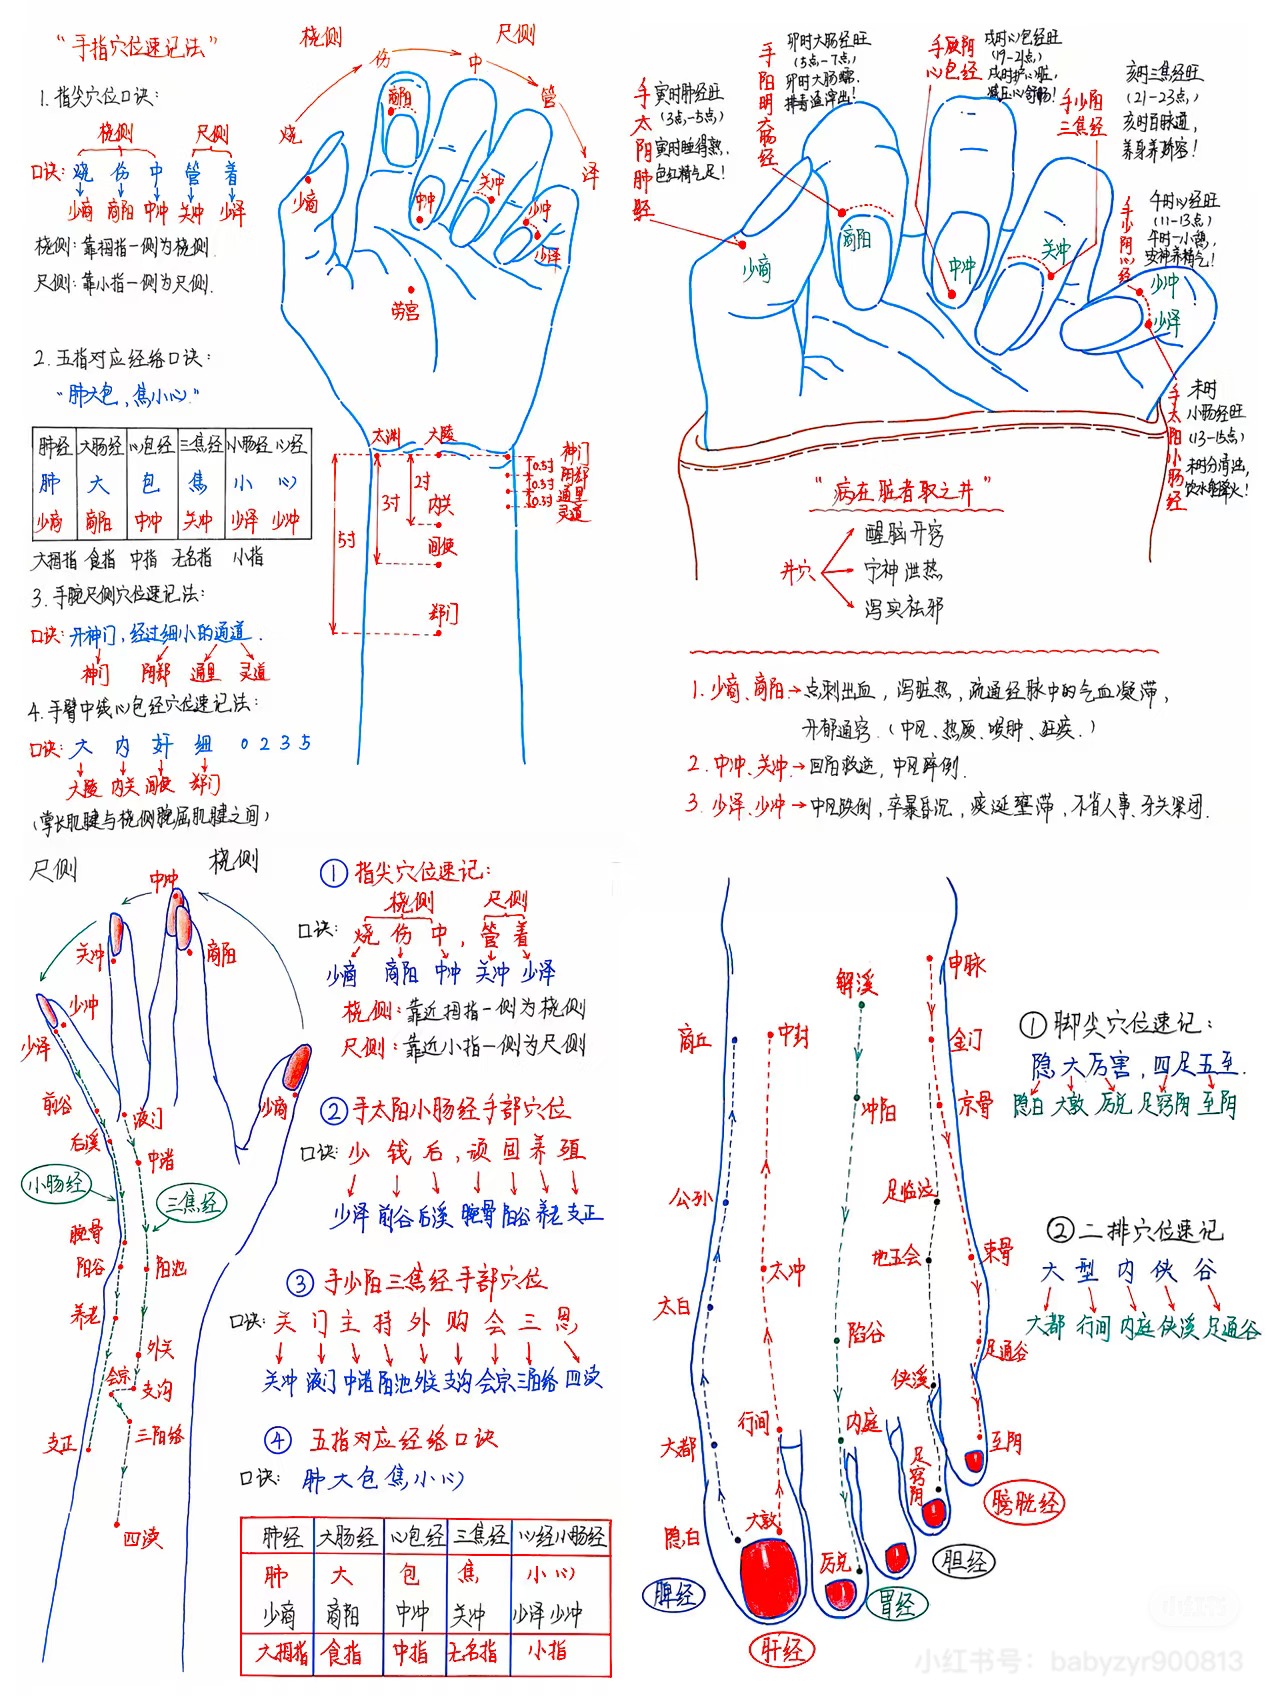 “手指穴位速记法”
1.指尖穴位口诀:
桡侧 尺侧
口诀: 烧 伤 中 管 着
少商 商阳 中冲 关冲 少泽
桡侧: 靠拇指一侧为桡侧.
尺侧: 靠小指一侧为尺侧.
2.五指对应经络口诀:
“肺大包, 焦小心.”
肺经 大肠经 心包经 三焦经 小肠经 心经
肺 大 包 焦 小 心
少商 商阳 中冲 关冲 少泽 少冲
大拇指 食指 中指 无名指 小指
3.手腕尺侧穴位速记法:
口诀: 开神门, 经过细小的通道.
神门 阴郄 通里 灵道
4.手臂中线心包经穴位速记法:
口诀: 大 内 奸 细 0 2 3 5
大陵 内关 间使 郄门
(掌长肌腱与桡侧腕屈肌腱之间)
桡侧 尺侧
烧 伤 中 管 泽
少商
商阳
中冲
关冲
少冲
少泽
劳宫
太渊 大陵
神门
阴郄
通里
灵道
0.5寸
0.5寸
0.5寸
2寸
3寸
5寸
内关
间使
郄门
手太阴肺经
寅时肺经旺
(3点-5点)
寅时睡得熟.
色红精气足!
手阳明大肠经
卯时大肠经旺
(5点-7点)
卯时大肠蠕.
排毒渣滓出!
手厥阴
心包经
戌时心包经旺
(19-21点)
戌时护心脏,
减压心舒畅!
手少阳
三焦经
亥时三焦经旺
(21-23点,)
亥时百脉通,
养身养娇容!
手少阴心经
午时心经旺
(11-13点)
午时一小憩,
安神养精气!
手太阳小肠经
未时
小肠经旺
(13-15点)
未时分清浊,
饮水能降火!
少商
商阳
中冲
关冲
少冲
少泽
“病在脏者取之井”
井穴
醒脑开窍
宁神泄热
泻实祛邪
1.少商、商阳→点刺出血, 泻脏热, 疏通经脉中的气血凝滞,
开郁通窍.(中风、热厥、喉肿、狂疾.)
2.中冲、关冲→回阳救逆, 中风猝倒.
3.少泽、少冲→中风跌倒, 卒暴昏沉, 痰涎壅滞, 不省人事、牙关紧闭.
尺侧 桡侧
中冲
关冲
商阳
少冲
少泽
少商
前谷
液门
后溪
中渚
小肠经
三焦经
腕骨
阳谷
阳池
养老
外关
会宗
支沟
支正
三阳络
四渎
① 指尖穴位速记:
桡侧 尺侧
口诀: 烧 伤 中, 管 着
少商 商阳 中冲 关冲 少泽
桡侧: 靠近拇指一侧为桡侧
尺侧: 靠近小指一侧为尺侧
② 手太阳小肠经手部穴位
口诀: 少 钱 后, 顽 固 养 殖
少泽 前谷 后溪 腕骨 阳谷 养老 支正
③ 手少阳三焦经手部穴位
口诀: 关 门 主 持 外 购 会 三 恩
关冲 液门 中渚 阳池 外关 支沟 会宗 三阳络 四渎
④ 五指对应经络口诀
口诀: 肺大包焦小心
肺经 大肠经 心包经 三焦经 心经小肠经
肺 大 包 焦 小心
少商 商阳 中冲 关冲 少泽 少冲
大拇指 食指 中指 无名指 小指
申脉
解溪
商丘
中封
金门
冲阳
京骨
公孙
足临泣
地五会
束骨
太冲
太白
陷谷
足通谷
侠溪
行间
内庭
大都
至阴
足窍阴
隐白
大敦
厉兑
膀胱经
胆经
胃经
脾经
肝经
① 脚尖穴位速记:
隐 大厉害, 四足五至.
隐白 大敦 厉兑 足窍阴 至阴
② 二排穴位速记
大 型 内 侠 谷
大都 行间 内庭 侠溪 足通谷
小红书
小红书号: babyzyr900813